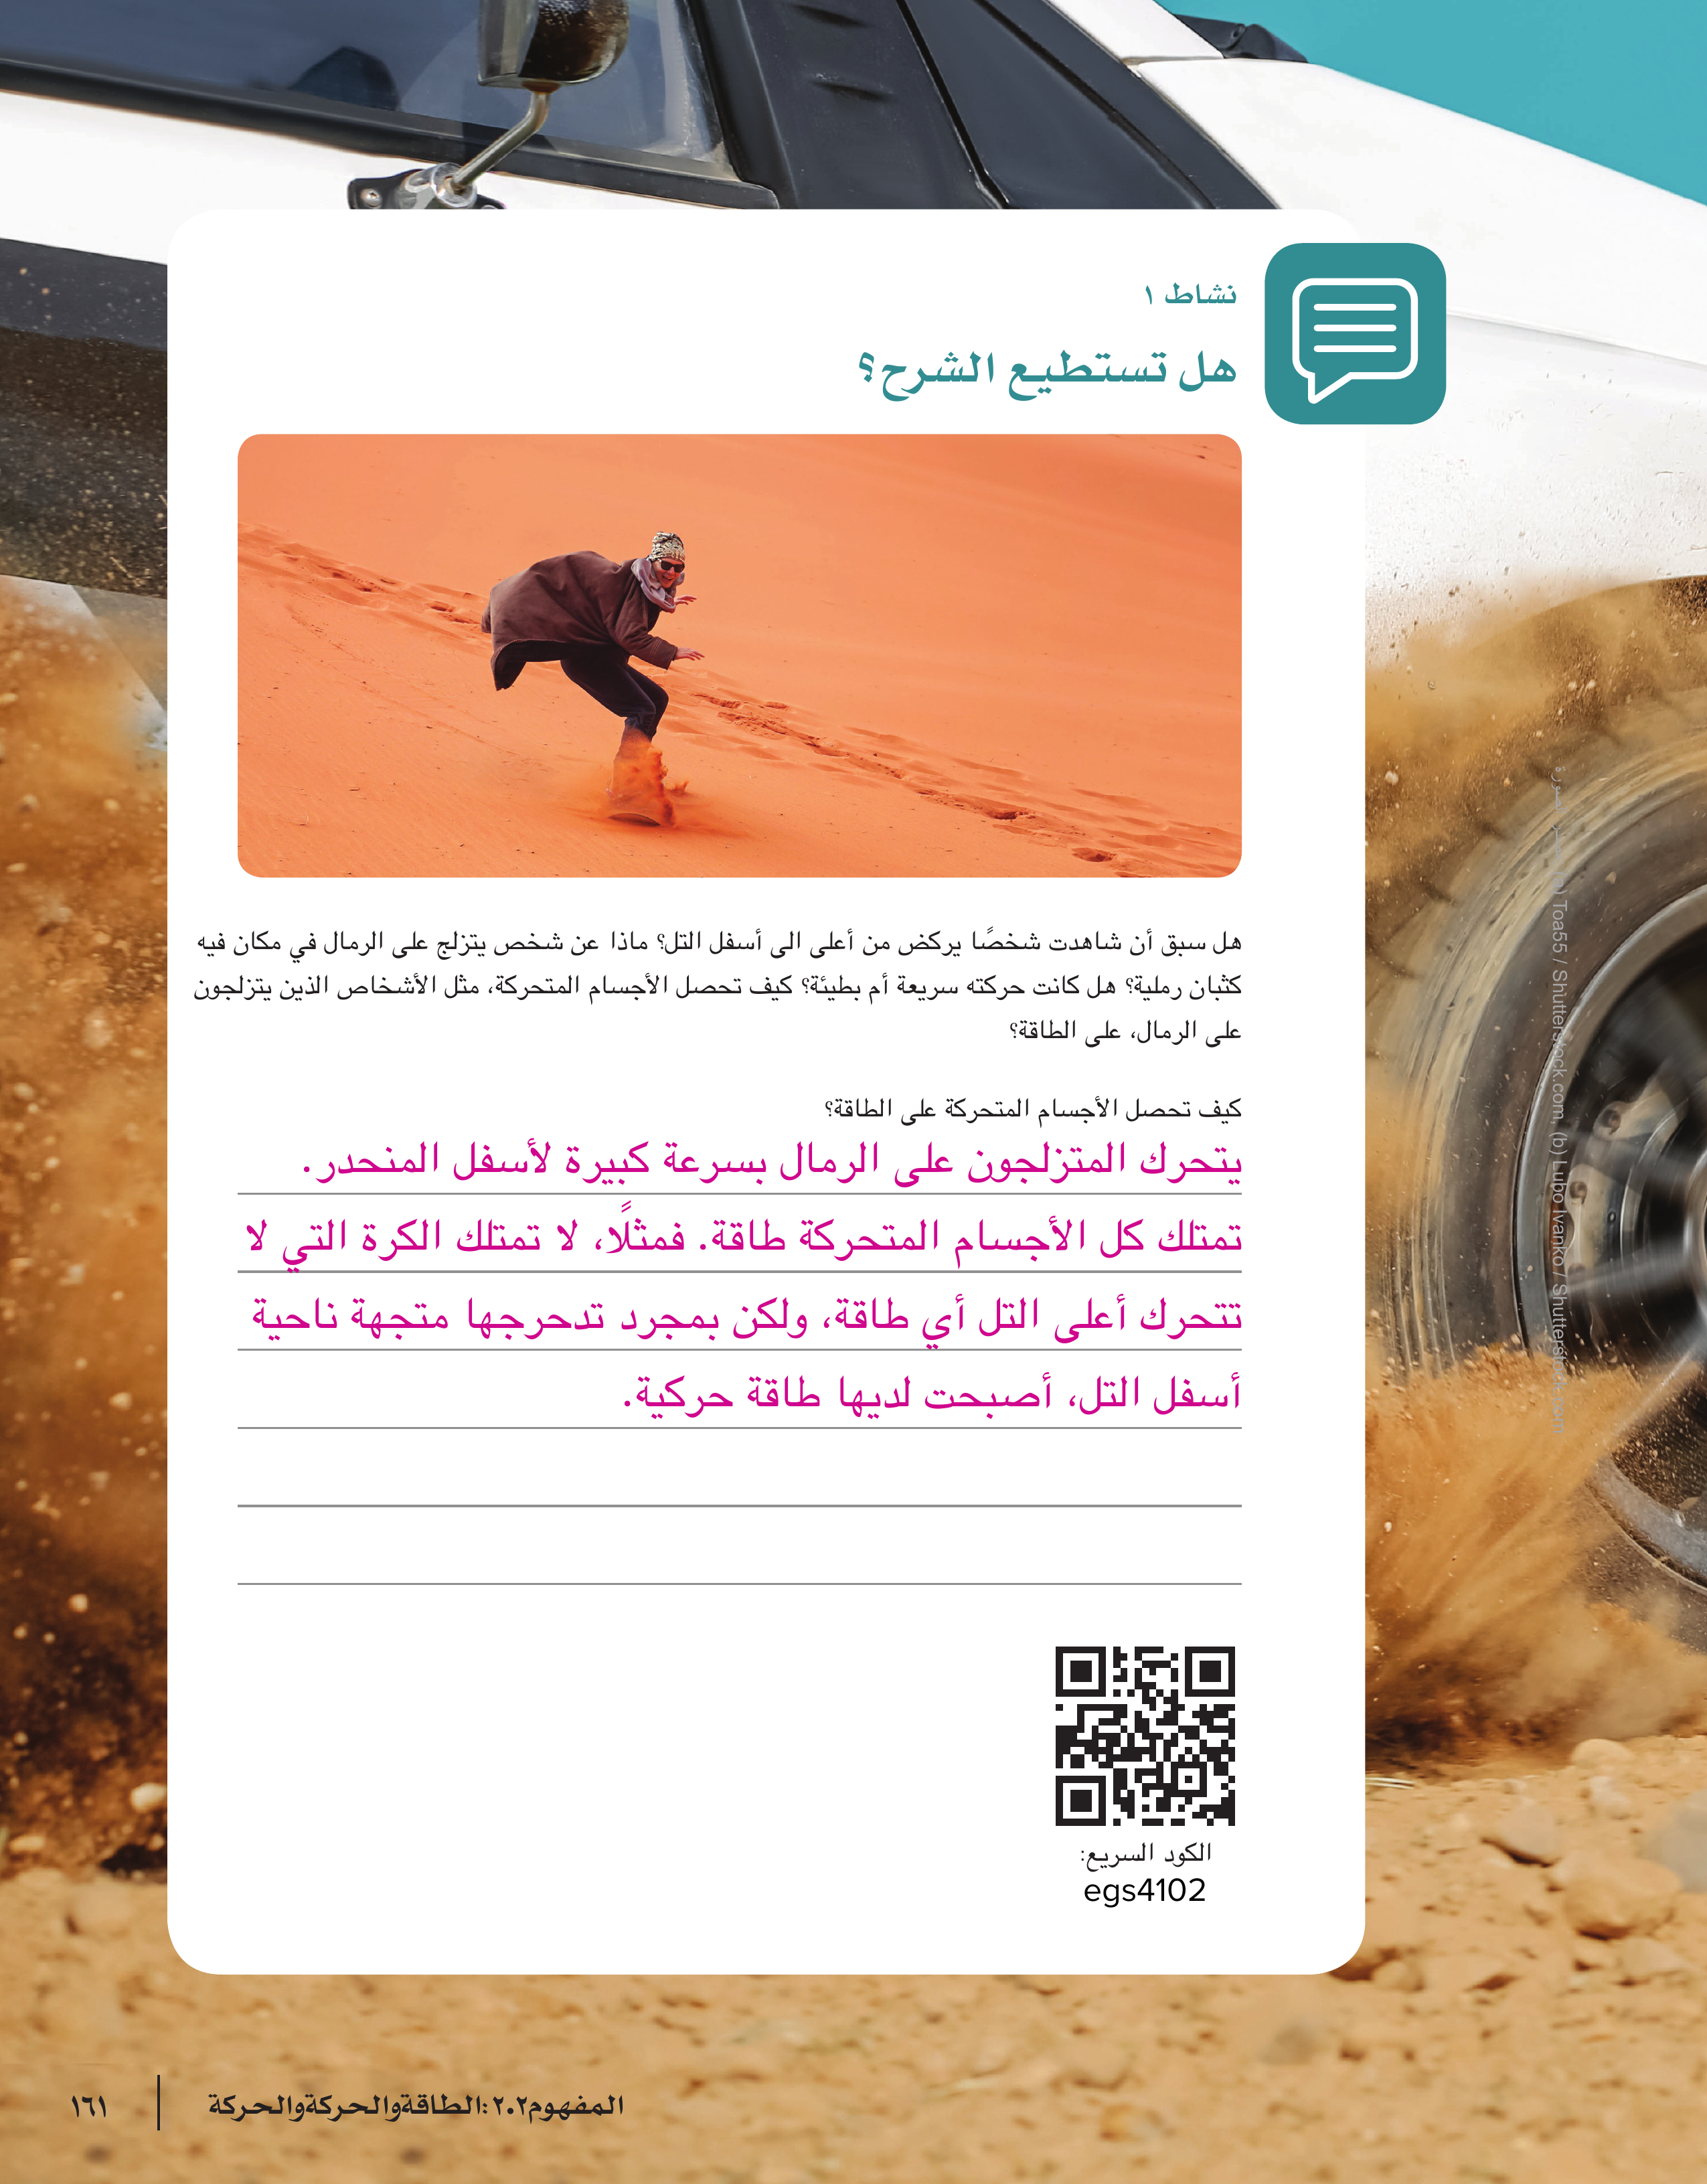 نشاط ١
هل تستطيع الشرح؟
هل سبق أن شاهدت شخصًا يركض من أعلى الى أسفل التل؟ ماذا عن شخص يتزلج على الرمال في مكان فيه
كثبان رملية؟ هل كانت حركته سريعة أم بطيئة؟ كيف تحصل الأجسام المتحركة، مثل الأشخاص الذين يتزلجون
على الرمال، على الطاقة؟
كيف تحصل الأجسام المتحركة على الطاقة؟
يتحرك المتزلجون على الرمال بسرعة كبيرة لأسفل المنحدر.
تمتلك كل الأجسام المتحركة طاقة. فمثلًا، لا تمتلك الكرة التي لا
تتحرك أعلى التل أي طاقة، ولكن بمجرد تدحرجها متجهة ناحية
أسفل التل، أصبحت لديها طاقة حركية.
الكود السريع:
egs4102
Toa55 / Shutterstock.com, (b) Lubo Ivanko / Shutterstock.com
المفهوم٢.٢ :الطاقةوالحركةوالحركة
١٦١